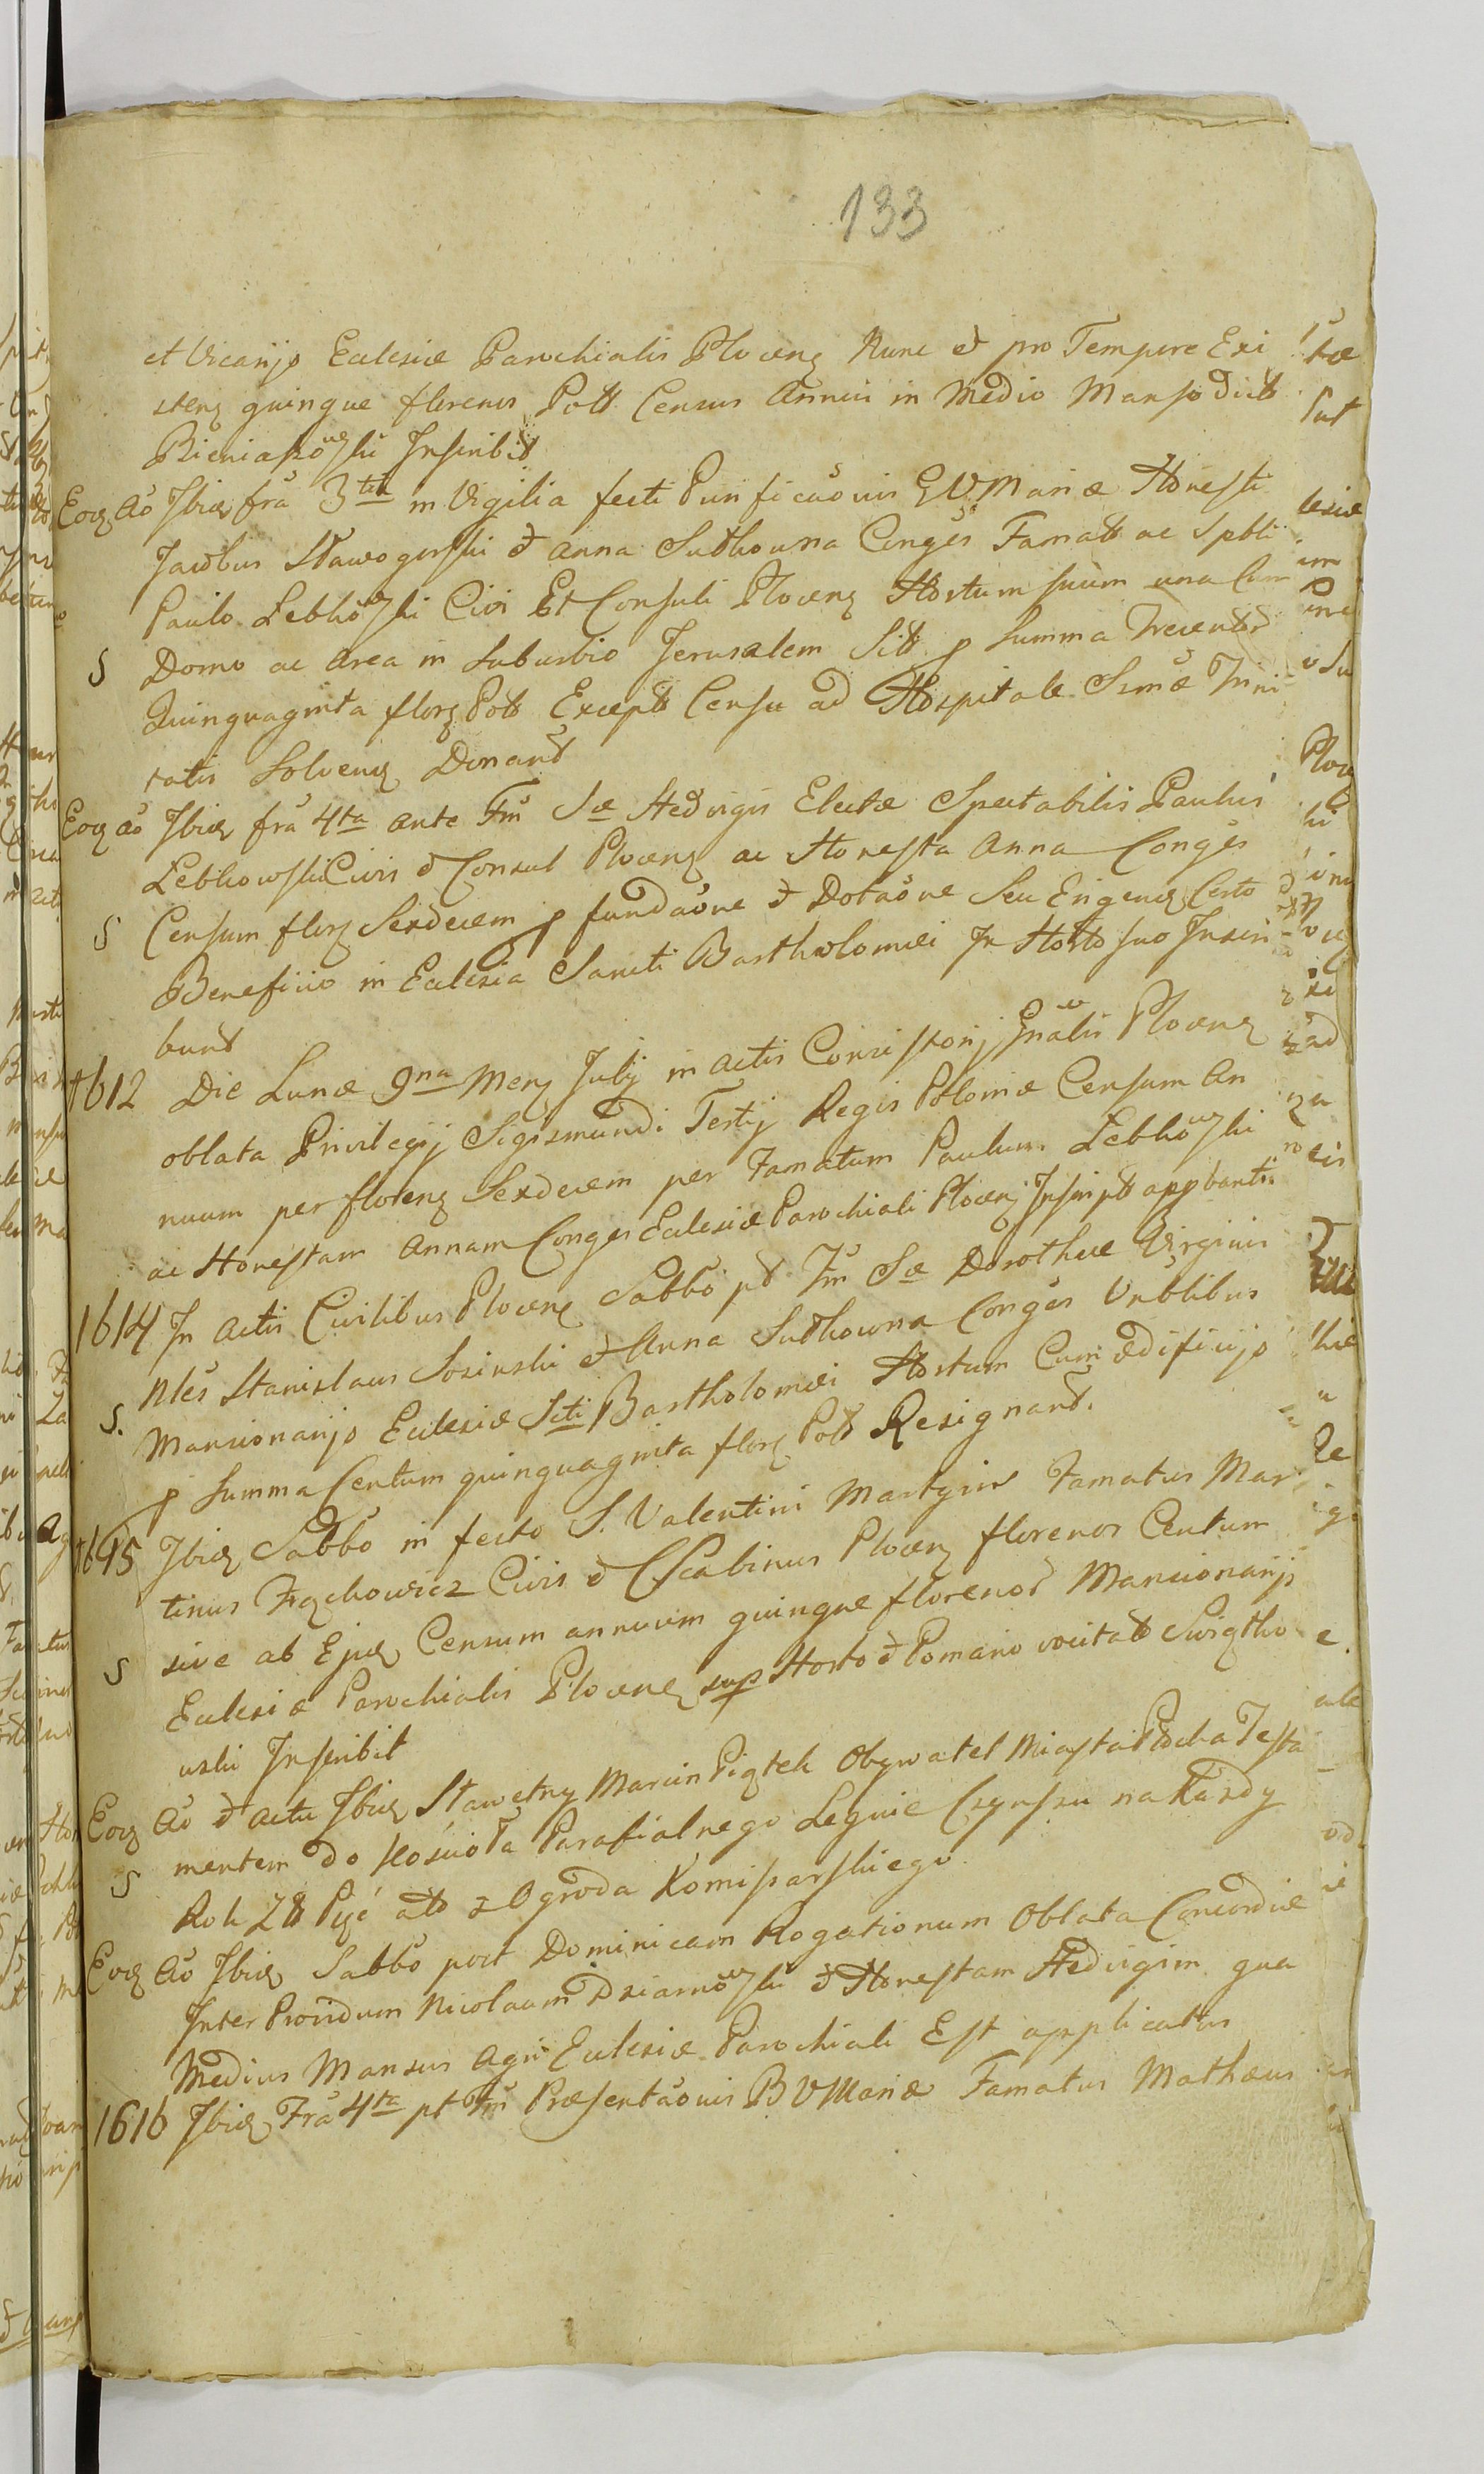 133
et Vicarijs Eclesiæ Parochialis Plocens Nunc et pro Tempore Exi
stens quinque florenos Poll Census Annui in Medio Manso dict
Inscribit
Eod Ao Ibid fra 3tia in Vigilia festi Purificaonis BVMariæ Honesti
Jacobus Sławogorski et Anna Suthowna Conges Famato ac Spbli
Paulo Lebkowski Civi Et Consuli Plocens Hortum suum una Cum
S Domo ac Area in Suburbio Jerusalem Sit p summa Trecentor
Quinquaginta flors Poll Except Censu ad Hospitale Ssmæ Trini
tatis Solvens Donant
Eod ao Ibid fra 4ta ante Fm Sæ Hedvigis Electæ Spectabilis Paulus
Lebkowski Civis et Consul Plocens ac Honesta Anna Conges
S Censum flors Sexdecem p fundaone et Dotaone Seu Erigend Certo
Beneficio in Eclesia Sancti Bartholomæi In Horto suo Inscri
bunt
1612 Die Lunæ 9na Mens Julij in actis Consistorij Gnalis Plocens
oblata Privilegij Sigismundi Tertij Regis Poloniæ Censum An
nuum per florens Sexdecem per Famatum Paulum Lebkowski
ac Honestam Annam Conges Eclesiæ Parochiali Plocens Inscript appbantis
1614 In Actis Civilibus Plocens Sabbo pt Fm Sæ Dorotheæ Virginis
Nles Stanislaus Sosinski et Anna Suthowna Conges Vnblibus
S. Mansionarijs Eclesiæ Scti Bartholomæi Hortum Cum ædificijs
p Summa Centum quinquaginta flors Poll Resignant.
1615 Ibid Sabbo in festo S. Valentini Martyris Famatus Mar
tinus Frąchowicz Civis et Scabinus Plocens florenos Centum
S sive ab Ejus Censum annuum quinque florenos Mansionarijs
Eclesiæ Parochialis Plocens sup Horto et Pomario vocitato Swiętho
wski Inscribit
Eod Ao et actu Ibid Sławetny Marcin Piątek Obywatel Miasta Płocka Testa
S mentem do Kościoła Parafialnego Leguie Czynszu na Kazdy
Rok Zł Pięć ato z Ogroda Komissarskiego
Eod Ao Ibid Sabbo post Dominicam Rogationum Oblata Concordiæ
Inter Providum Nicolaum Dziarnowski et Honestam Hedvigim qua
Medius Mansus Agri Eclesiæ Parochiali Est applicatus
1616 Ibid Fra 4ta pt Fm Præsentaonis BVMariæ Famatus Mathæus